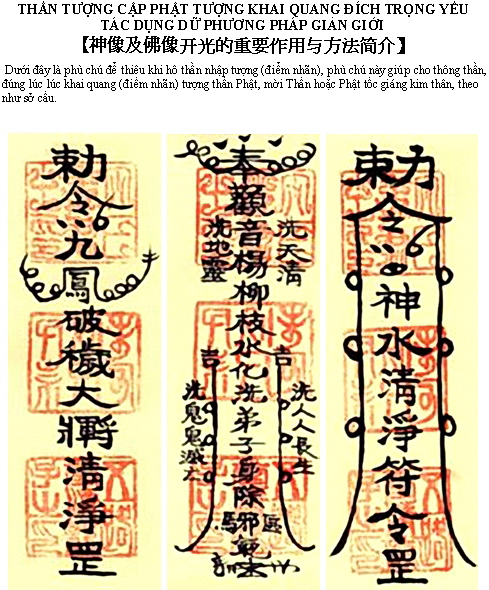 THẦN TƯỢNG CẬP PHẬT TƯỢNG KHAI QUANG ĐÍCH TRỌNG YẾU
TÁC DỤNG DỮ PHƯƠNG PHÁP GIẢN GIỚI
【神像及佛像开光的重要作用与方法简介】
Dưới đây là phù chú để thiêu khi hô thần nhập tượng (điểm nhãn), phù chú này giúp cho thông thần,
đúng lúc lúc khai quang (điểm nhãn) tượng thần Phật, mời Thần hoặc Phật tốc giáng kim thân, theo
như sở cầu.
勅令九鳳破穢大清淨罡
奉觀音楊柳枝水化洗弟子身除邪
洗天清
洗地靈
吉
吉
洗人人長生
洗鬼鬼滅亡
勅令神水清淨符令罡